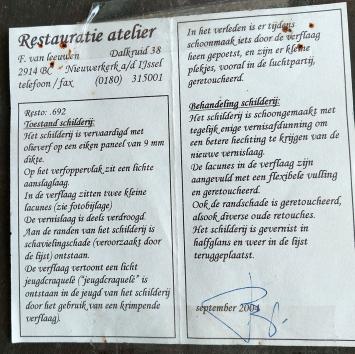 Restauratie atelier
F. van leeuwen Dalkruid 38
2914 BC Nieuwerkerk a/d IJssel
telefoon / fax (0180) 315001
Resto: .692
Toestand schilderij:
Het schilderij is vervaardigd met
olieverf op een eiken paneel van 9 mm
dikte.
Op het verfoppervlak zit een lichte
aanslaglaag.
In de verflaag zitten twee kleine
lacunes (zie fotobijlage)
De vernislaag is deels verdroogd.
Aan de randen van het schilderij is
schavielingschade (veroorzaakt door
de lijst) ontstaan.
De verflaag vertoont een licht
jeugdcraquelé ("jeugdcraquelé" is
ontstaan in de jeugd van het schilderij
door het gebruik van een krimpende
verflaag).
In het verleden is er tijdens
schoonmaak iets door de verflaag
heen gepoetst, en zijn er kleine
plekjes, vooral in de luchtpartij,
geretoucheerd.
Behandeling schilderij:
Het schilderij is schoongemaakt met
tegelijk enige vernisafdunning om
een betere hechting te krijgen van de
nieuwe vernislaag.
De lacunes in de verflaag zijn
aangevuld met een flexibele vulling
en geretoucheerd.
Ook de randschade is geretoucheerd,
alsook diverse oude retouches.
Het schilderij is gevernist in
halfglans en weer in de lijst
teruggeplaatst.
september 2004